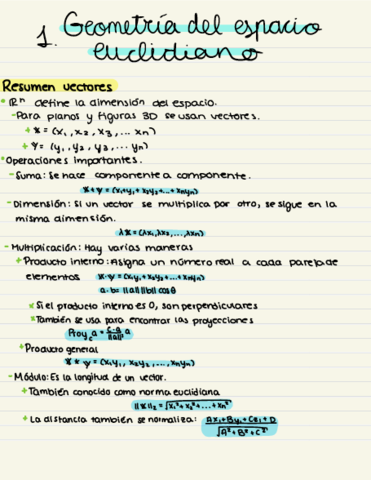 1. Geometría del espacio
euclidiano
Resumen vectores
• ℝⁿ define la dimensión del espacio.
- Para planos y figuras 3D se usan vectores.
+ 𝕏 = (x₁, x₂, x₃, ... xn)
+ Y = (y₁, y₂, y₃, ... yn)
• Operaciones importantes.
- Suma: Se hace componente a componente.
𝕏 + Y = (x₁+y₁, + x₂y₂ + ... + xnyn)
- Dimensión: Si un vector se multiplica por otro, se sigue en la
misma dimensión.
λ𝕏 = (λx₁, λx₂, ..., λxn)
- Multiplicación: Hay varias maneras
+ Producto interno: Asigna un número real a cada pareja de
elementos 𝕏·Y = (x₁y₁ + x₂y₂ + ... + xnyn)
a·b = ||a|| ||b|| cos θ
× Si el producto interno es 0, son perpendiculares
× También se usa para encontrar las proyecciones
Proy_c a = (c·a / ||a||) a
+ Producto general
𝕏 * Y = (x₁y₁, x₂y₂, ..., xnyn)
- Módulo: Es la longitud de un vector.
+ También conocido como norma euclidiana
||𝕏||₂ = √x₁² + x₂² + ... + xn²
+ La distancia también se normaliza: Ax₁ + By₁ + Cz₁ + D / √A² + B² + C²